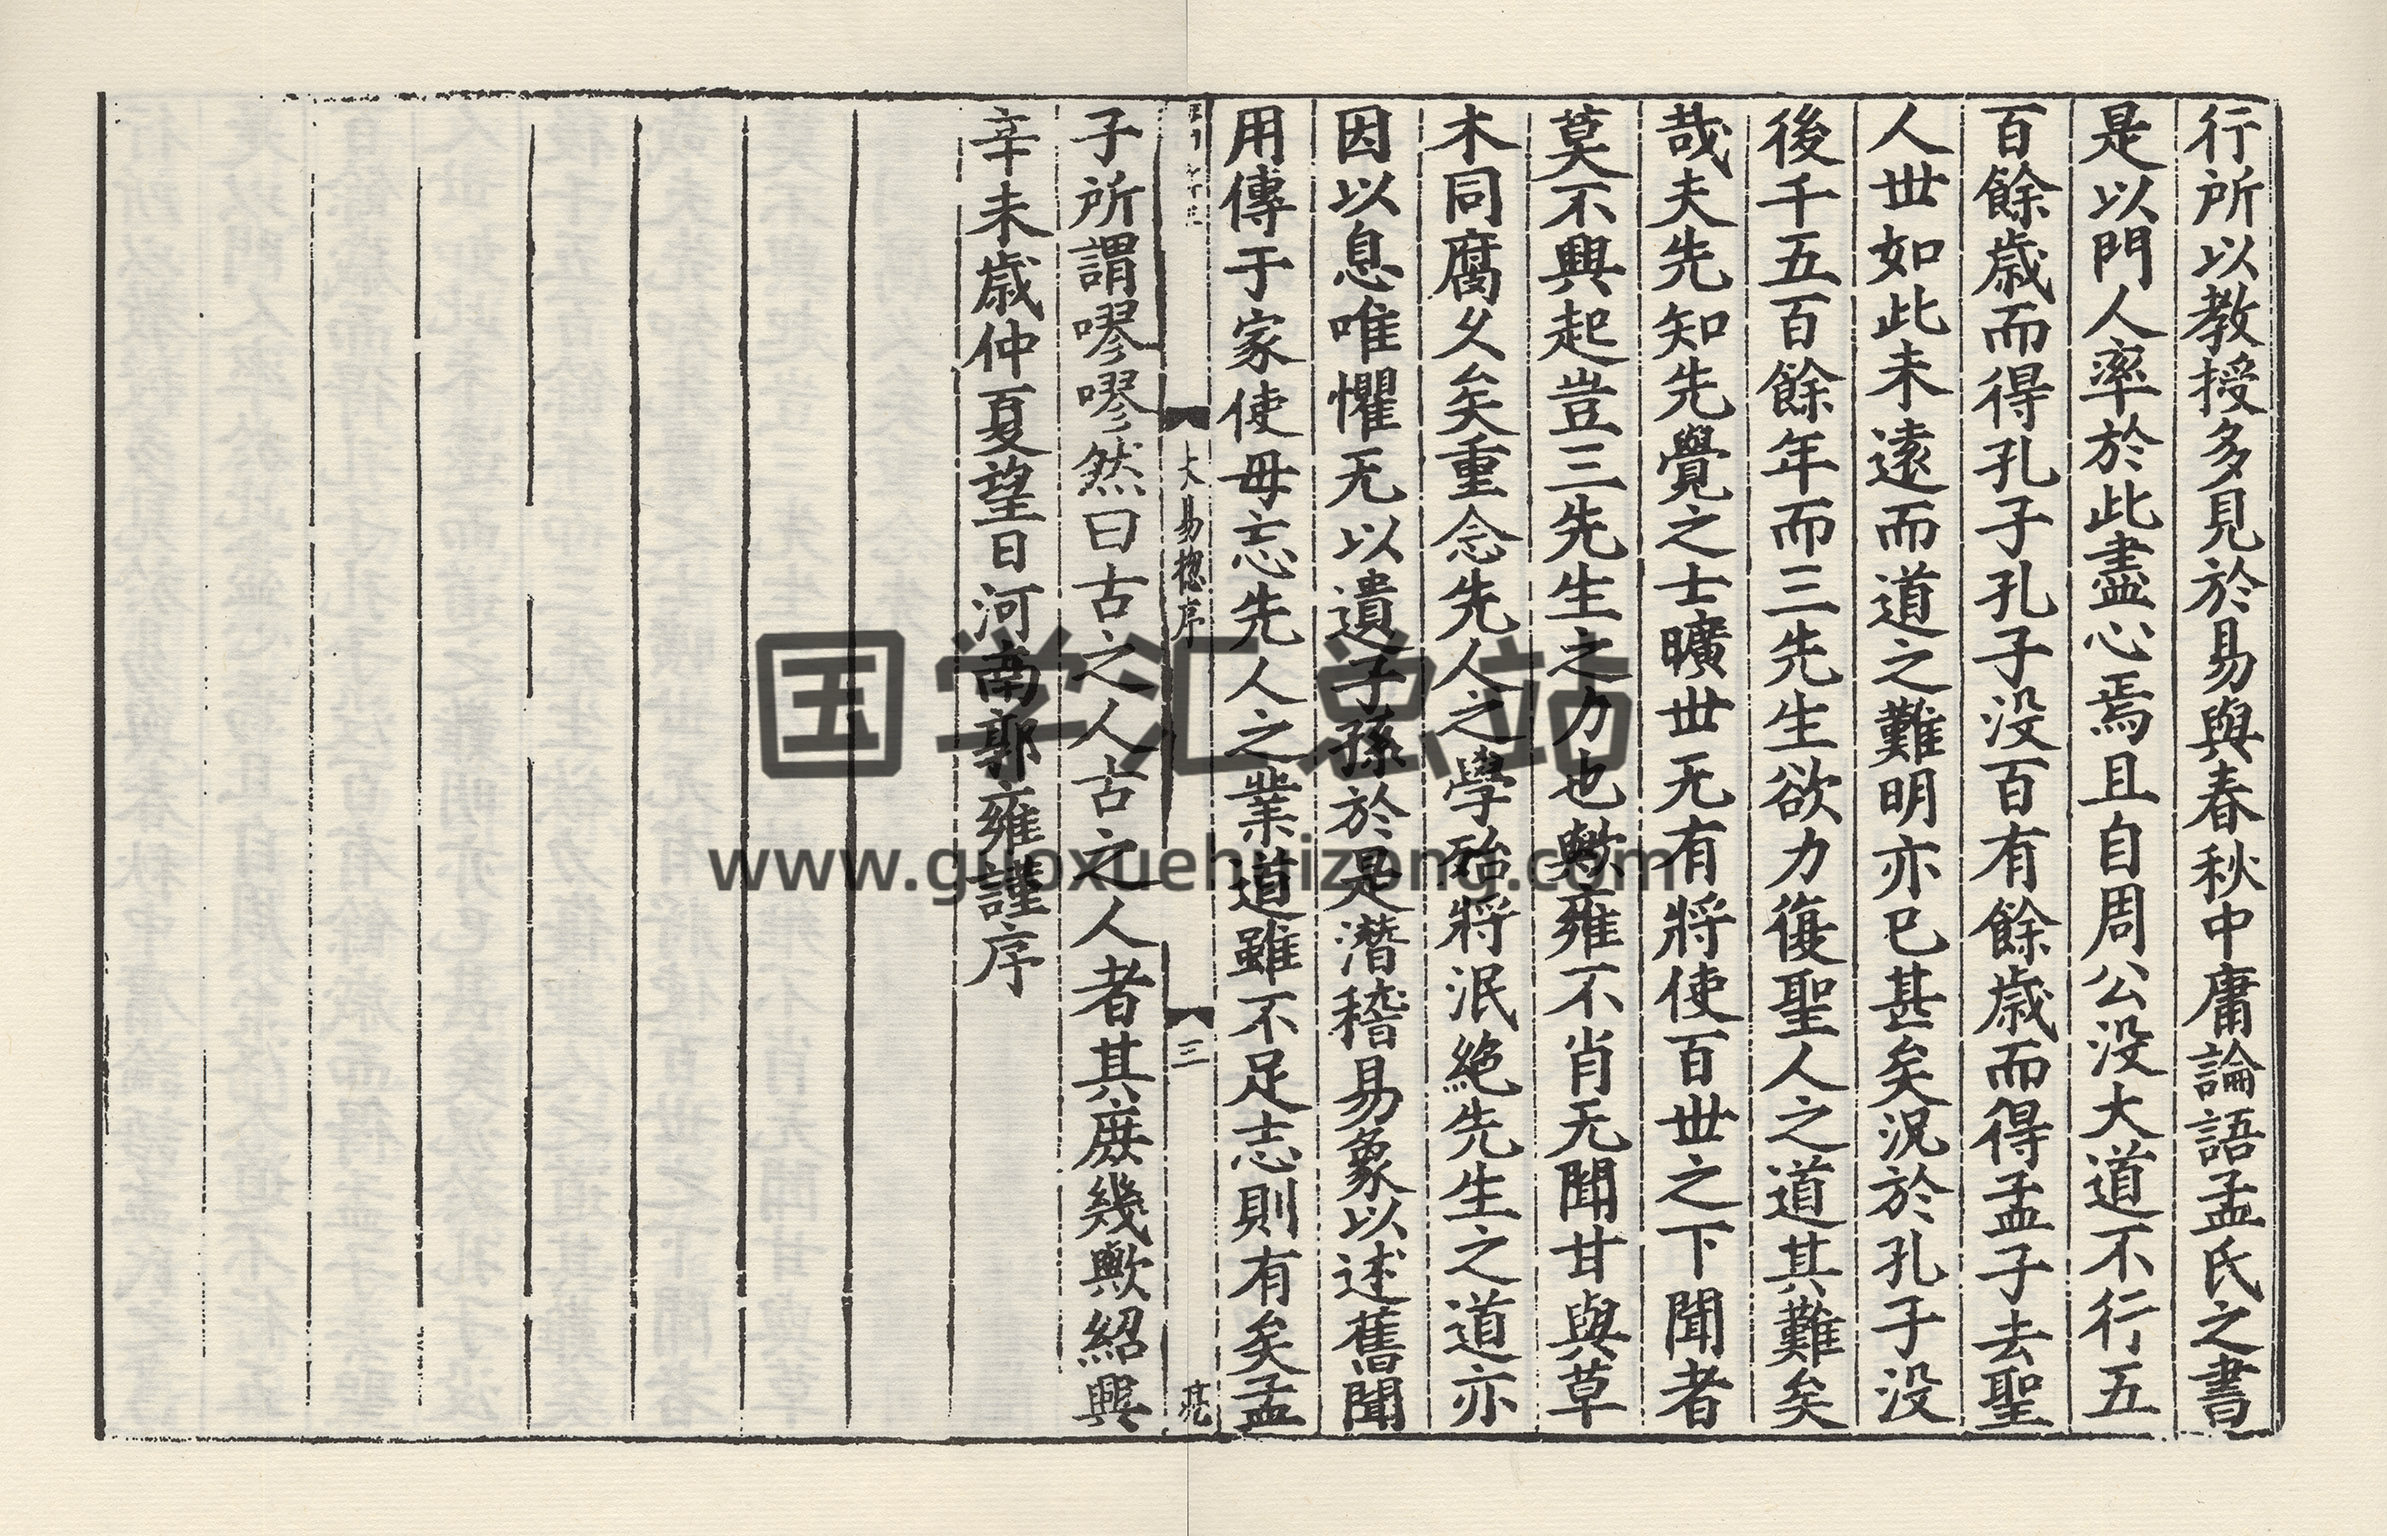 行所以教授多見於易與春秋中庸論語孟氏之書
是以門人率於此盡心焉且自周公没大道不行五
百餘歳而得孔子孔子没百有餘歳而得孟子去聖
人世如此未遠而道之難明亦已甚矣況於孔子没
後千五百餘年而三先生欲力復聖人之道其難矣
哉夫先知先覺之士曠世无有將使百世之下聞者
莫不興起豈三先生之力也歟雍不肖无聞甘與草
木同腐乆矣重念先人之學殆將泯絶先生之道亦
因以息唯懼无以遺子孫於是潛稽易象以述舊聞
用傳于家使毋忘先人之業道雖不足志則有矣孟
大易揔序
三
子所謂嘐嘐然曰古之人古之人者其庶幾歟紹興
辛未歳仲夏望日河南郭雍謹序
国学汇总站
www.guoxuehuizong.com